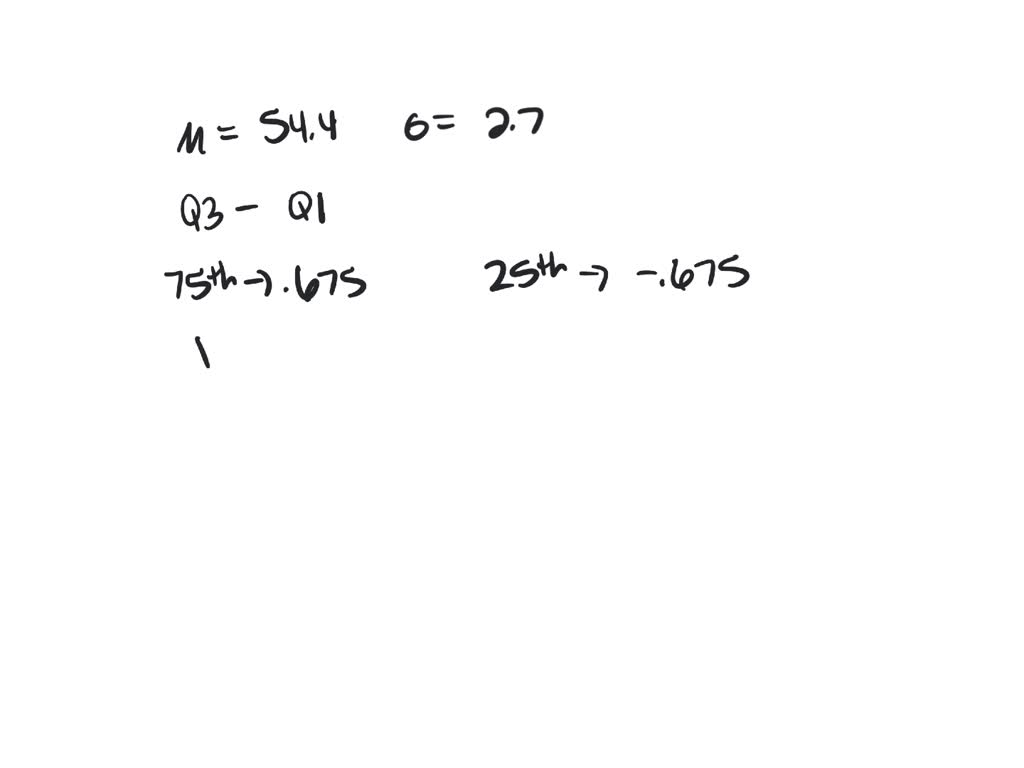 μ = 54.4 σ = 2.7
Q3 - Q1
75th → .675 25th → -.675
\